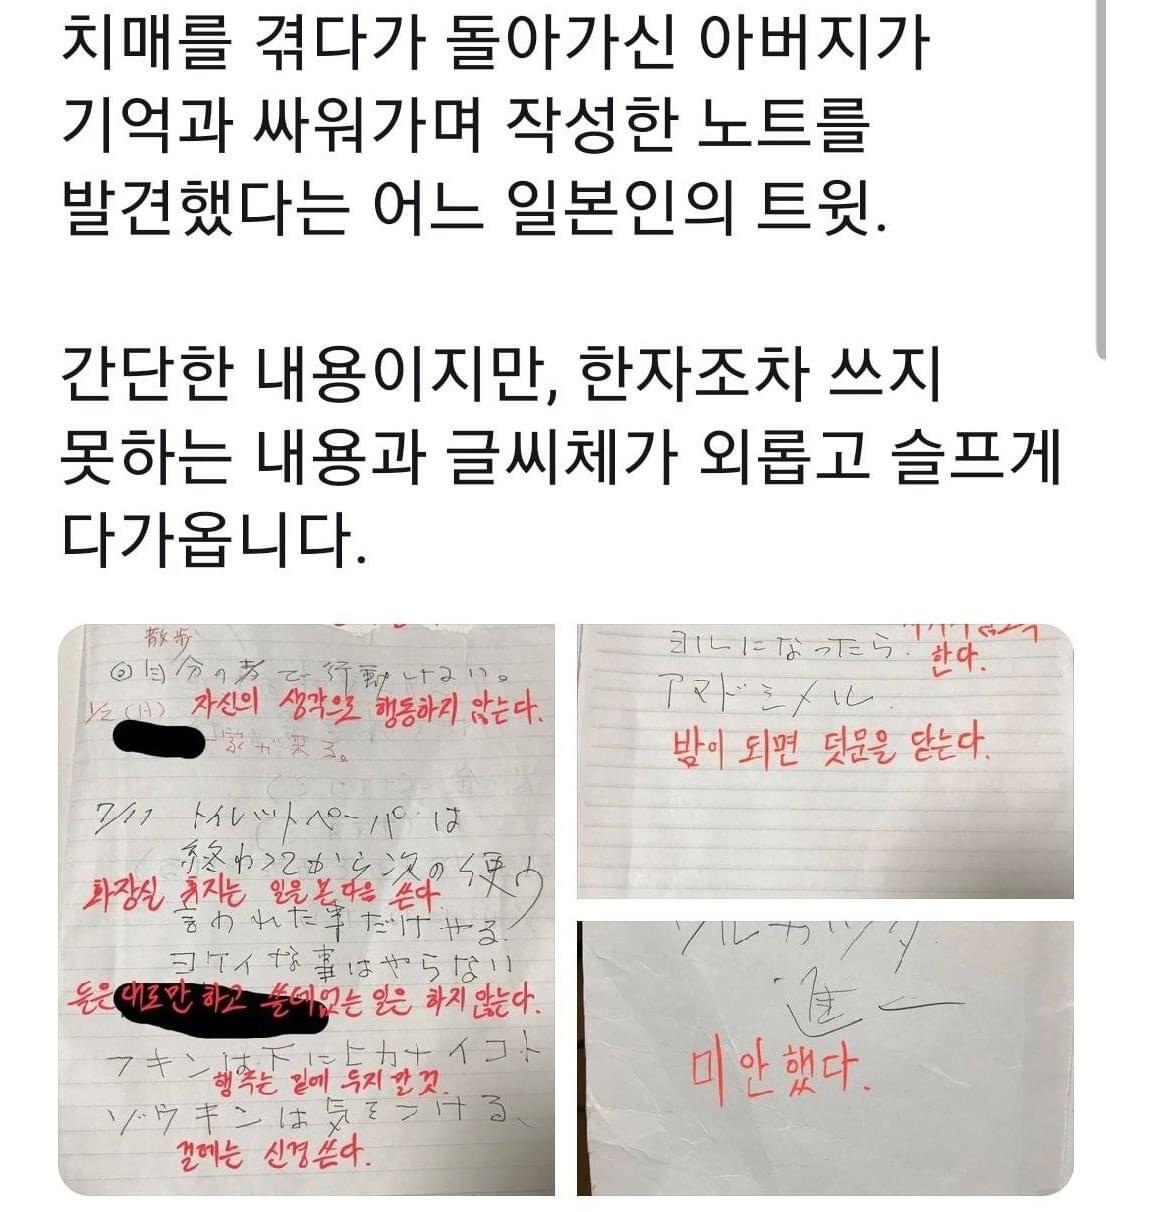 치매를 겪다가 돌아가신 아버지가
기억과 싸워가며 작성한 노트를
발견했다는 어느 일본인의 트윗.
간단한 내용이지만, 한자조차 쓰지
못하는 내용과 글씨체가 외롭고 슬프게
다가옵니다.
散歩
◎自分の考で行動しない。
1/2(月) 자신의 생각으로 행동하지 않는다.
家が来る。
トイレットペーパーは
終わってから次の使う
화장실 휴지는 일을 본 다음 쓴다.
言われた事だけやる.
ヨケイな事はやらない
듣은대로만 하고 쓸데없는 일은 하지 않는다.
フキンは下に
행주는 밑에 두지 말 것.
ゾウキンは気をつける、
걸레는 신경쓴다.
ヨルになったら.
한다.
アマドシメル.
밤이 되면 덧문을 닫는다.
進一
미안했다.